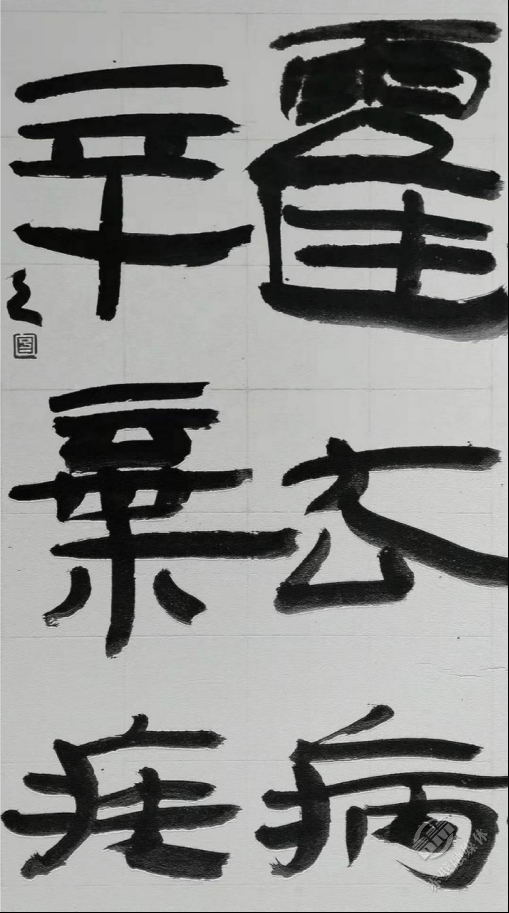 霍去病
辛棄疾